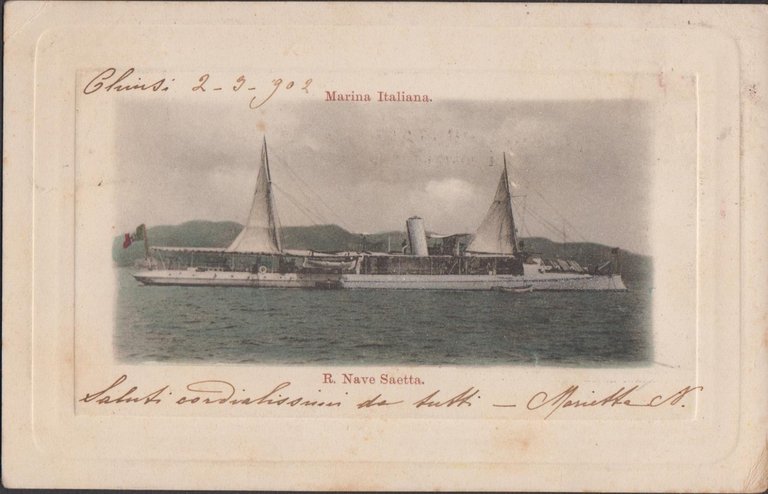 Chiusi 2-3-902
Marina Italiana.
R. Nave Saetta.
Saluti cordialissimi da tutti — Marietta N.